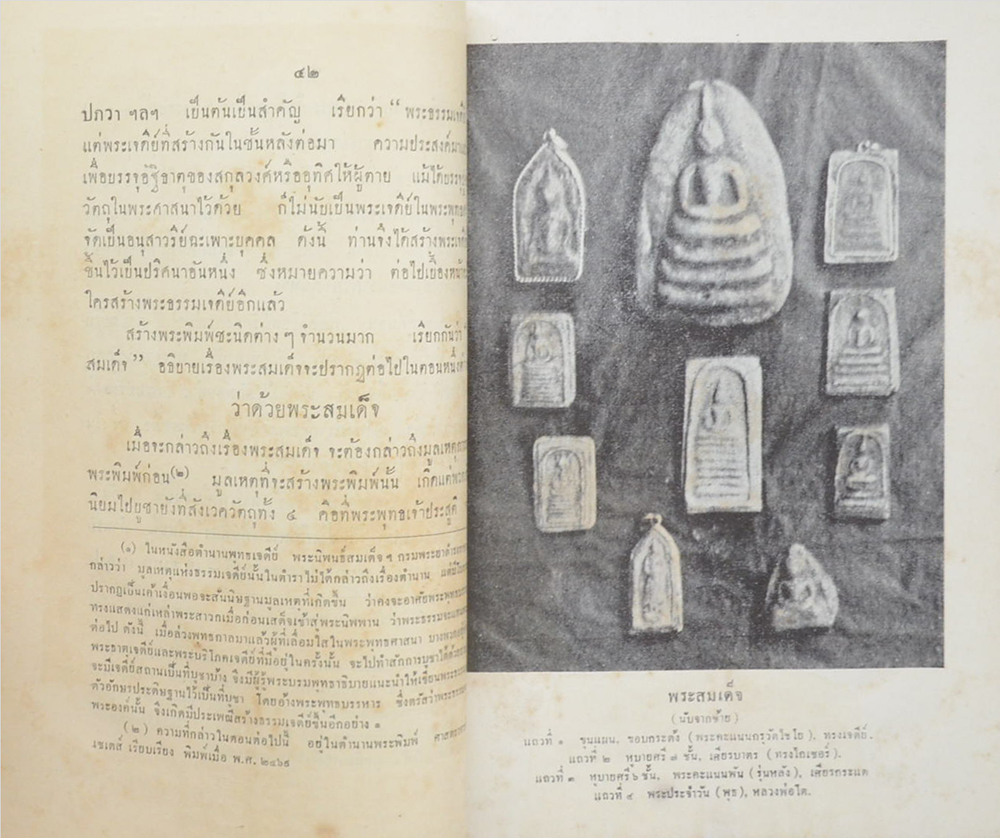 ๔๒
ปภวา ฯลฯ เป็นต้นเป็นสำคัญ เรียกว่า “ พระธรรมเจดีย์
แต่พระเจดีย์ที่สร้างกันในชั้นหลังต่อมา ความประสงค์
เพื่อบรรจุอัฐิธาตุของสกุลวงศ์หรืออุทิศให้ผู้ตาย แม้ได้บรรจุ
วัตถุในพระศาสนาไว้ด้วย ก็ไม่นับเป็นพระเจดีย์ในพระพุทธ
จัดเป็นอนุสาวรีย์ฉะเพาะบุคคล ดังนี้ ท่านจึงได้สร้างพระ
ขึ้นไว้เป็นปริศนาอันหนึ่ง ซึ่งหมายความว่า ต่อไปเบื้องหน้า
ใครสร้างพระธรรมเจดีย์อีกแล้ว
สร้างพระพิมพ์ชะนิดต่าง ๆ จำนวนมาก เรียกกันว่า
สมเด็จ ” อธิบายเรื่องพระสมเด็จจะปรากฏต่อไปในตอนหนึ่ง
ว่าด้วยพระสมเด็จ
เมื่อจะกล่าวถึงเรื่องพระสมเด็จ จะต้องกล่าวถึงมูลเหตุ
พระพิมพ์ก่อน(๒) มูลเหตุที่จะสร้างพระพิมพ์นั้น เกิดแต่
นิยมไปบูชายังที่สังเวควัตถุทั้ง ๔ คือที่พระพุทธเจ้าประสูติ
(๑) ในหนังสือตำนานพุทธเจดีย์ พระนิพนธ์สมเด็จ ฯ กรมพระยาดำรง
กล่าวว่า มูลเหตุแห่งธรรมเจดีย์นั้นในตำราไม่ได้กล่าวถึงเรื่องตำนาน แต่มี
ปรากฏเป็นเค้าเงื่อนพอจะสันนิษฐานมูลเหตุที่เกิดขึ้น ว่าคงจะอาศัยพระพุทธ
ทรงแสดงแก่เหล่าพระสาวกเมื่อก่อนเสด็จเข้าสู่พระนิพพาน ว่าพระธรรมจะ
ต่อไป ดังนี้ เมื่อล่วงพุทธกาลมาแล้วผู้ที่เลื่อมใสในพระพุทธศาสนา บางพวก
พระธาตุเจดีย์และพระบริโภคเจดีย์ที่มีอยู่ในครั้งนั้น จะไปทำสักการบูชาได้ด้วย
จะมีเจดีย์สถานเป็นที่บูชาบ้าง จึงมีผู้รู้พระบรมพุทธาธิบายแนะนำให้เขียนพระธรรม
ตัวอักษรประดิษฐานไว้เป็นที่บูชา โดยอ้างพระพุทธบรรหาร ซึ่งตรัสว่าพระธรรม
พระองค์นั้น จึงเกิดมีประเพณีสร้างธรรมเจดีย์ขึ้นอีกอย่าง ๑
(๒) ความที่กล่าวในตอนต่อไปนี้ อยู่ในตำนานพระพิมพ์ ศาสตราจารย์
เซเดส์ เรียบเรียง พิมพ์เมื่อ พ.ศ. ๒๔๖๙
พระสมเด็จ
(นับจากซ้าย)
แถวที่ ๑ ขุนแผน, ขอบกระด้ง (พระคะแนนกรุวัดไชโย), ทรงเจดีย์.
แถวที่ ๒ หูบายศรี ๗ ชั้น, เศียรบาตร (ทรงไกเซอร์).
แถวที่ ๓ หูบายศรี ๖ ชั้น, พระคะแนนพัน (รุ่นหลัง), เศียรกระแต
แถวที่ ๔ พระประจำวัน (พุธ), หลวงพ่อโต.